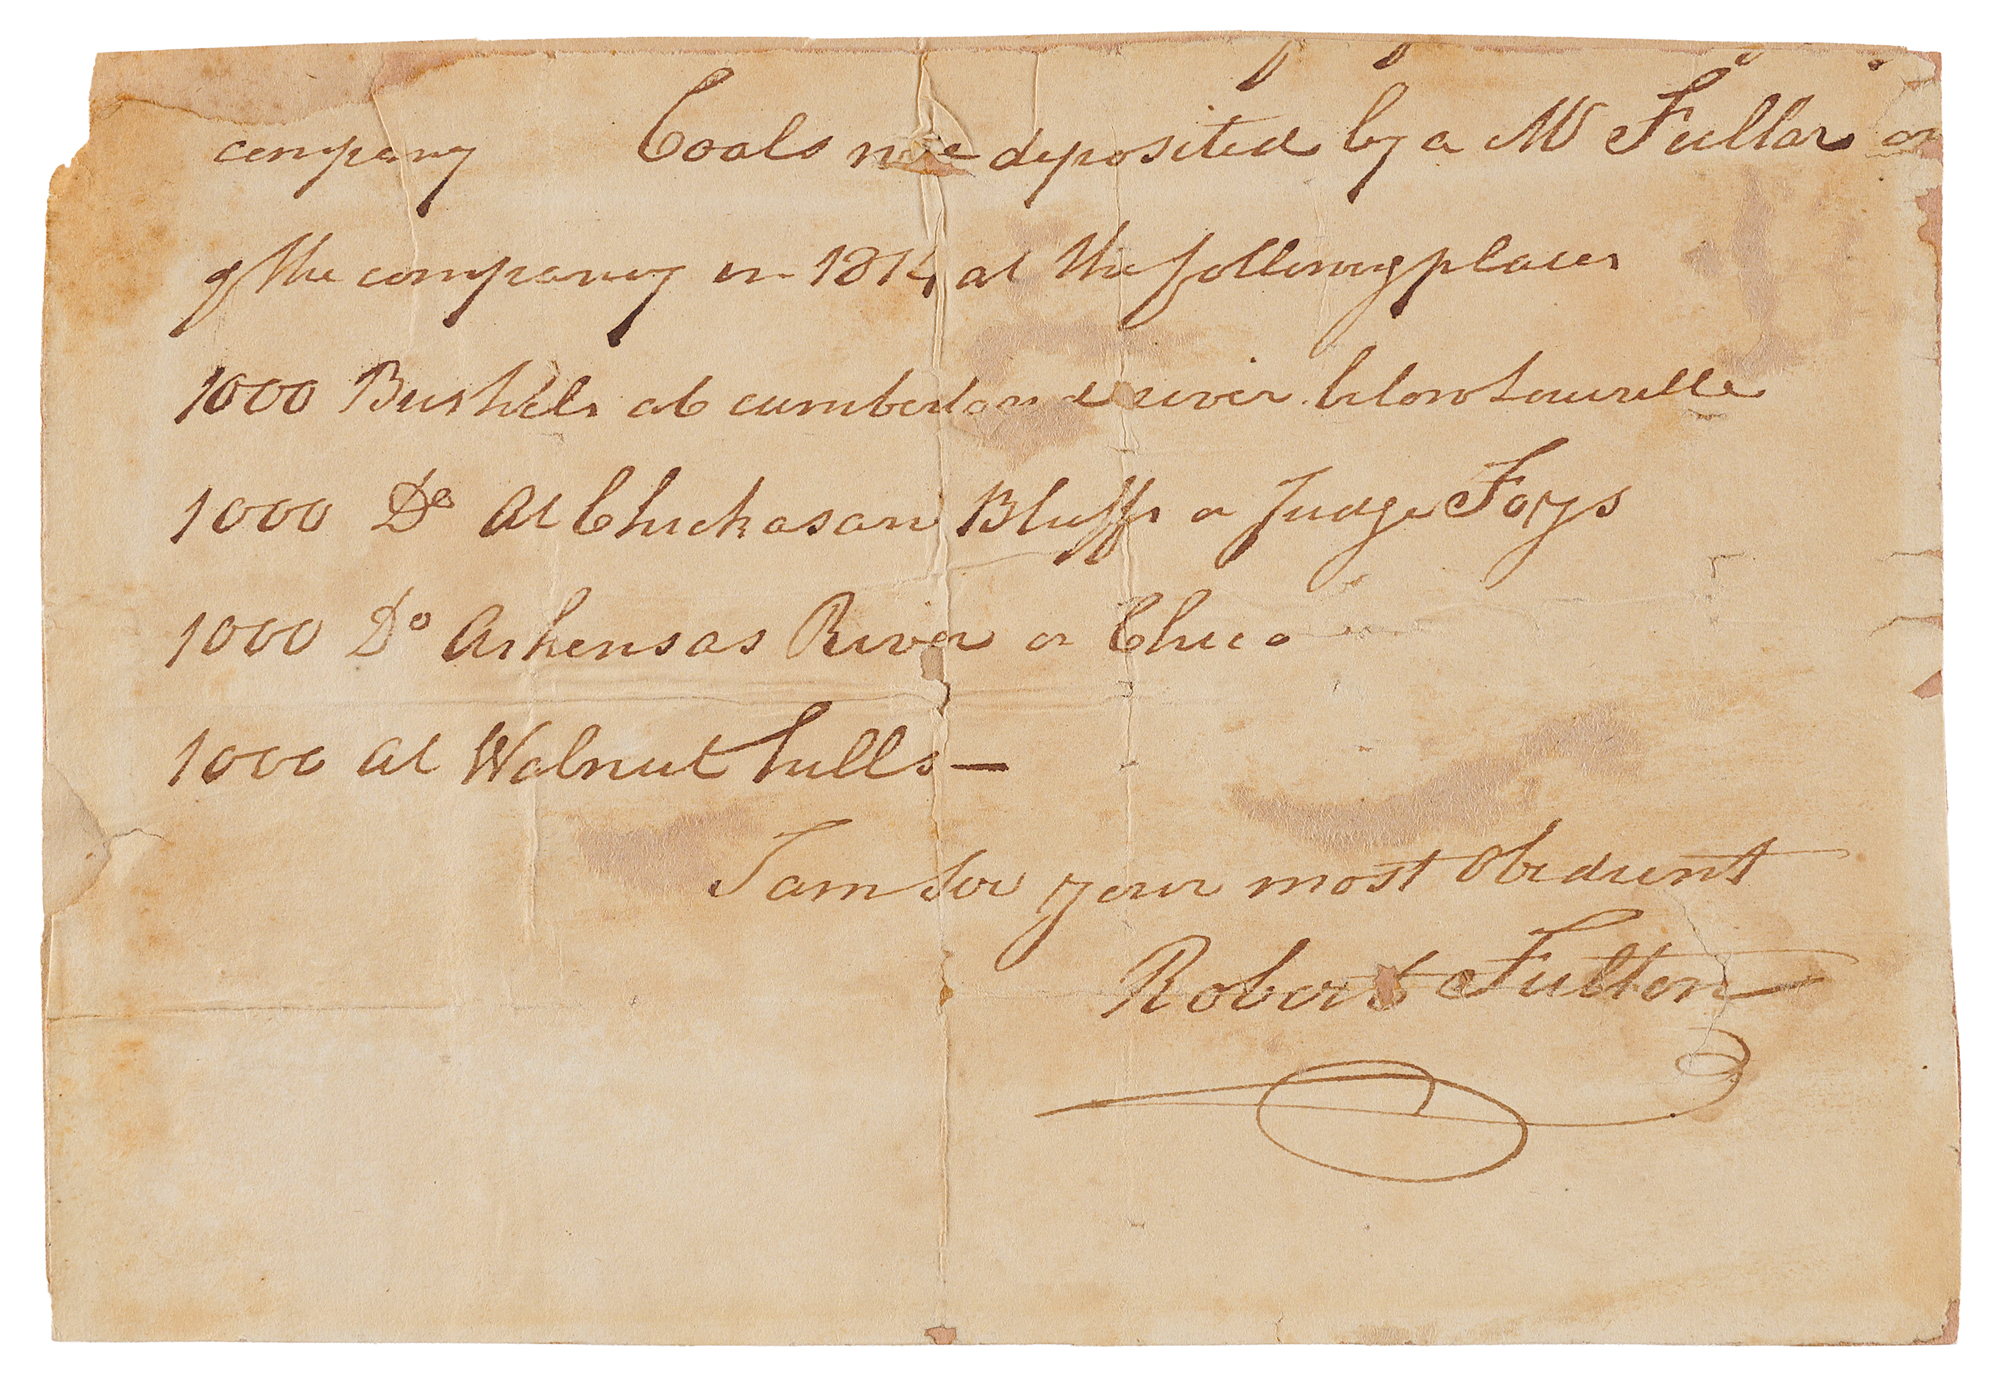 company Coals were deposited by a Mr Fullar on
of the company in 1814 at the following places
1000 Bushels at cumberland river below Louiville
1000 Do At Chickasan Bluffs or Judge Foys
1000 Do Arkensas River or Chico
1000 at Walnut hills —
I am Sir your most Obedient
Robert Fulton